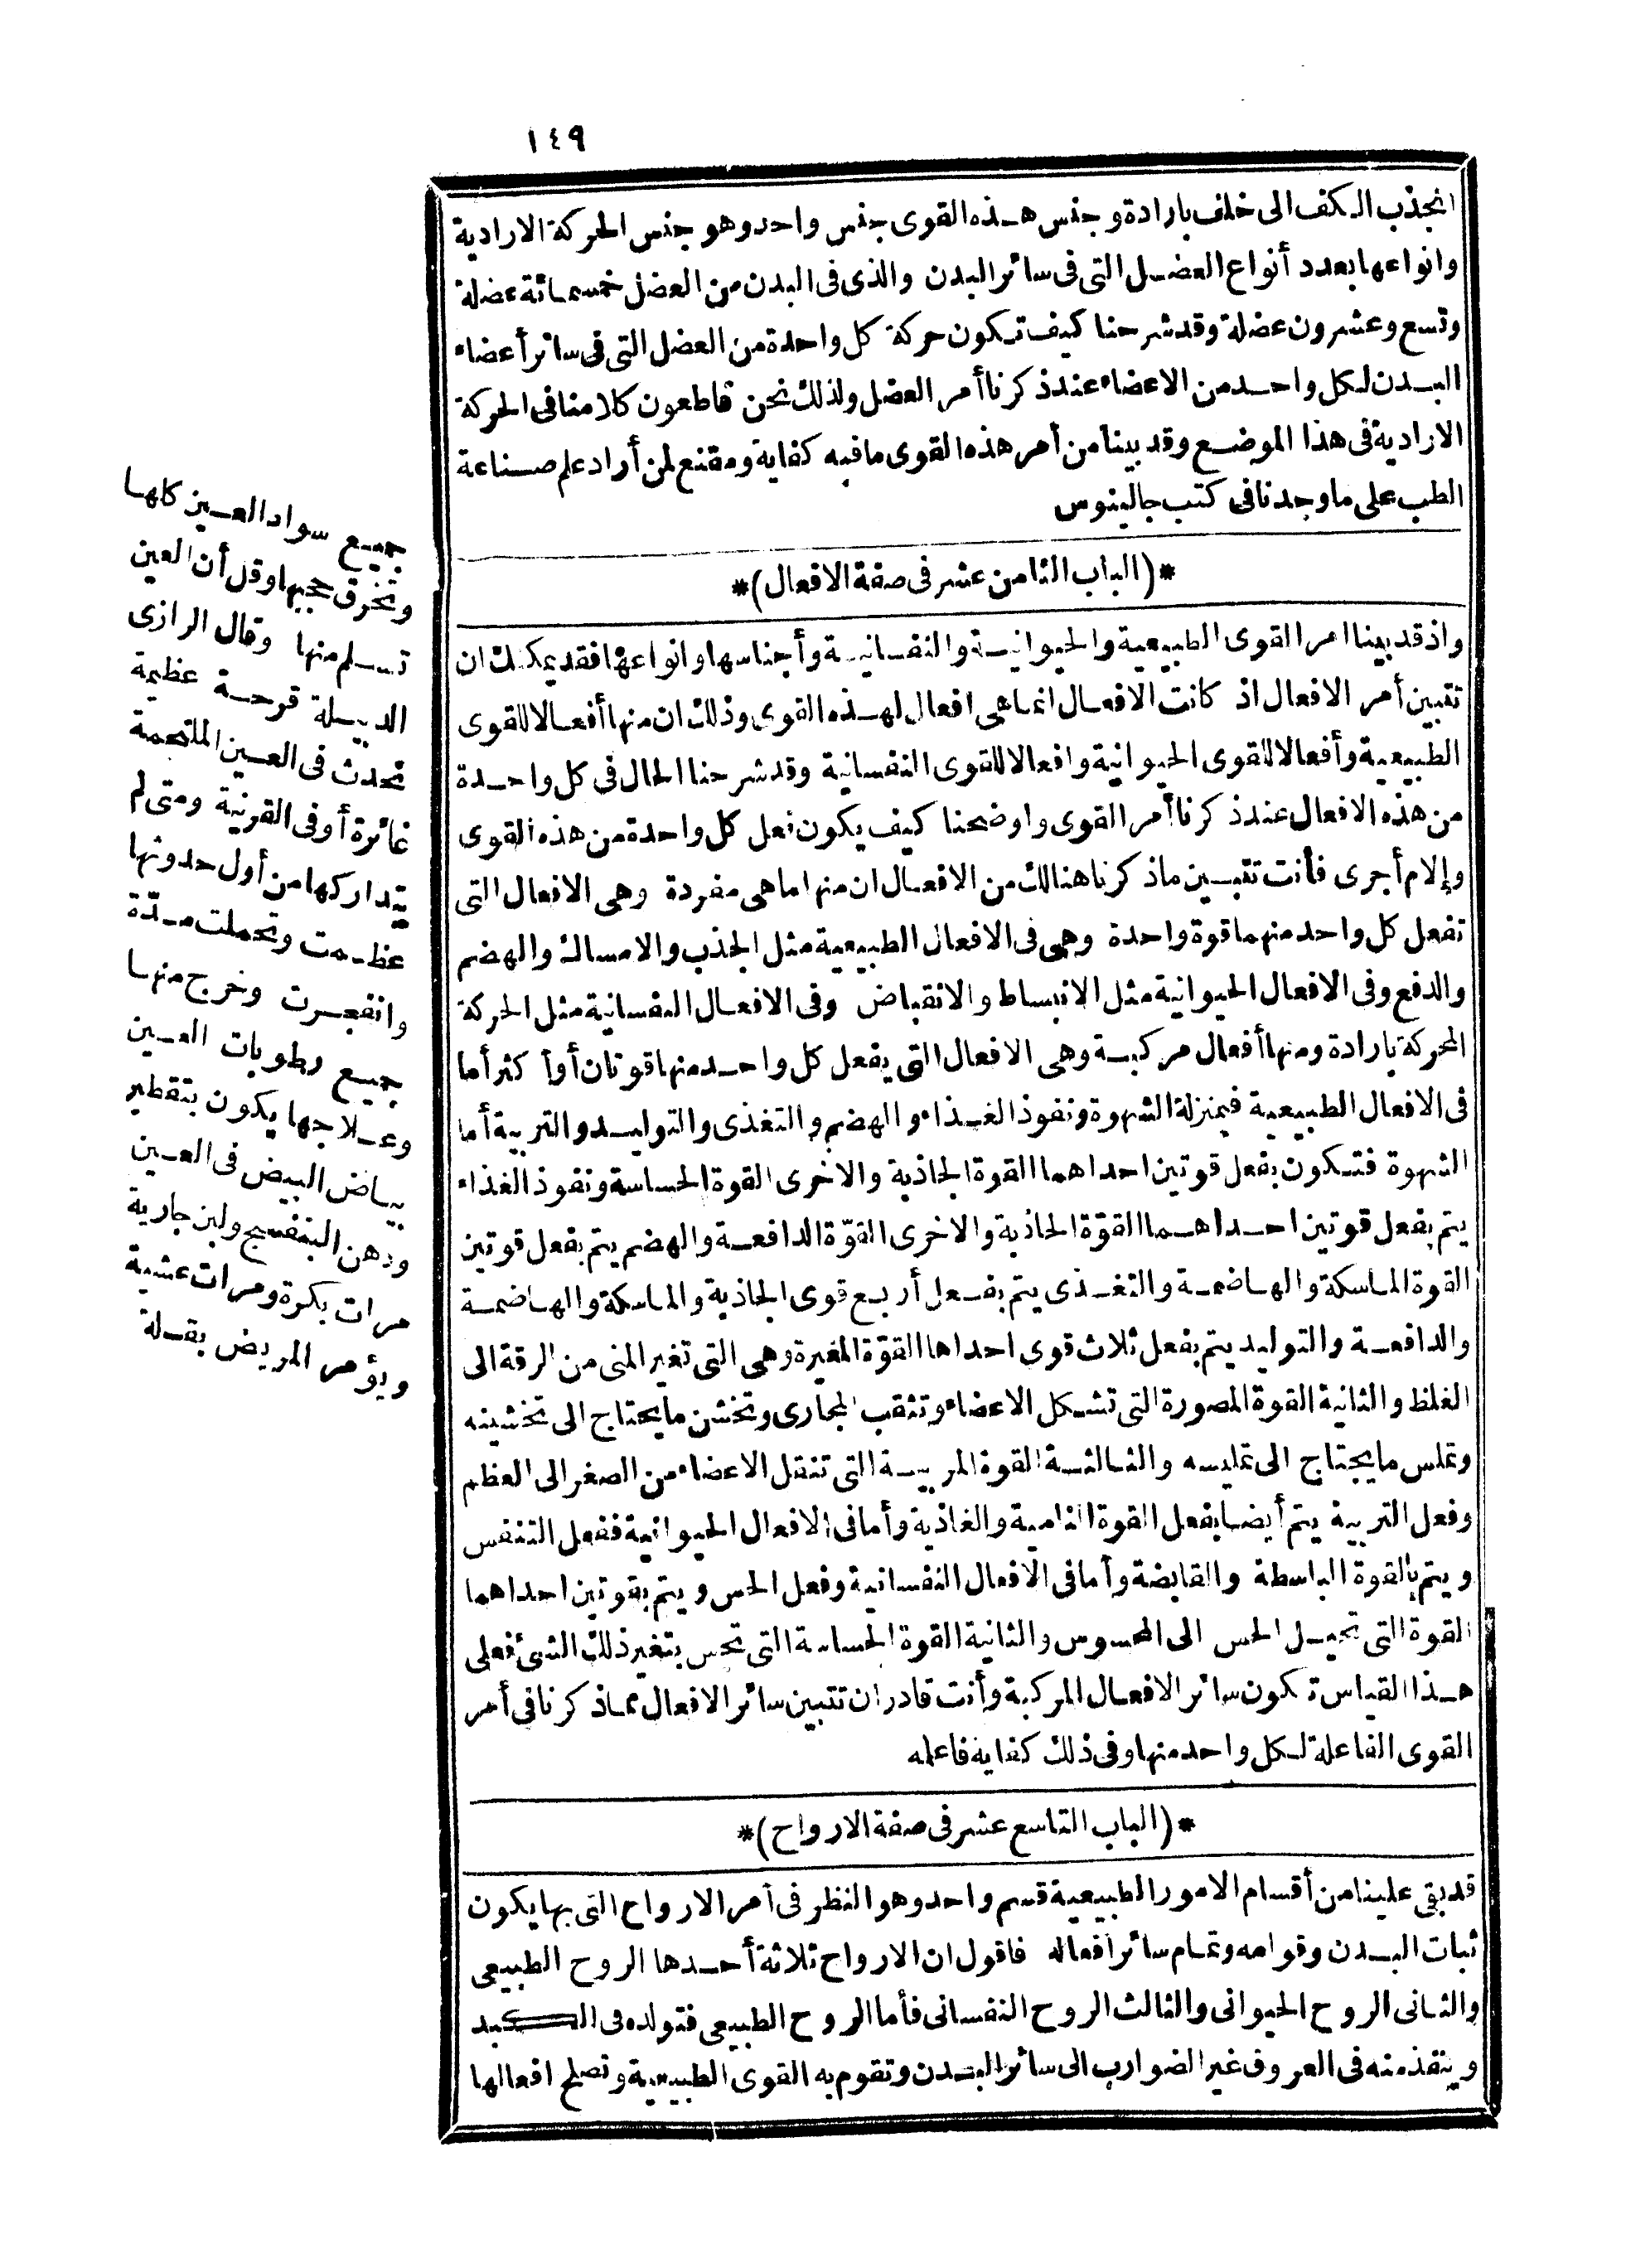 ١٤٩
انجذب الكف الى خلف بارادة وجنس هذه القوى جنس واحد وهو جنس الحركة الارادية
وانواعها بعدد أنواع العضل التى فى سائر البدن والذى فى البدن من العضل خمسمائة عضلة
وتسع وعشرون عضلة وقد شرحنا كيف تكون حركة كل واحدة من العضل التى فى سائر أعضاء
البدن لكل واحد من الاعضاء عند ذكرنا أمر العضل ولذلك نحن قاطعون كلامنا فى الحركة
الارادية فى هذا الموضع وقد بينا من أمر هذه القوى ما فيه كفاية ومقنع لمن أراد علم صناعة
الطب على ما وجدنا فى كتب جالينوس
*(الباب الثامن عشر فى صفة الافعال)*
واذ قد بينا امر القوى الطبيعية والحيوانية والنفسانية وأجناسها وانواعها فقد يمكنك ان
تتبين أمر الافعال اذ كانت الافعال انما هى افعال لهذه القوى وذلك ان منها أفعالا للقوى
الطبيعية وأفعالا للقوى الحيوانية وافعالا للقوى النفسانية وقد شرحنا الحال فى كل واحدة
من هذه الافعال عند ذكرنا أمر القوى واوضحنا كيف يكون فعل كل واحدة من هذه القوى
والام أجرى فأنت تتبين ماذكرنا هنالك من الافعال ان منها ماهى مفردة وهى الافعال التى
تفعل كل واحد منهما قوة واحدة وهى فى الافعال الطبيعية مثل الجذب والامساك والهضم
والدفع وفى الافعال الحيوانية مثل الانبساط والانقباض وفى الافعال النفسانية مثل الحركة
المحركة بارادة ومنها أفعال مركبة وهى الافعال التى يفعل كل واحد منها قوتان أو أكثر أما
فى الافعال الطبيعية فبمنزلة الشهوة ونفوذ الغذاء والهضم والتغذى والتوليد والتربية أما
الشهوة فتكون بفعل قوتين احداهما القوة الجاذبة والاخرى القوة الحساسة ونفوذ الغذاء
يتم بفعل قوتين احداهما القوّة الجاذبة والاخرى القوّة الدافعة والهضم يتم بفعل قوتين
القوة الماسكة والهاضمة والتغذى يتم بفعل أربع قوى الجاذبة والماسكة والهاضمة
والدافعة والتوليد يتم بفعل ثلاث قوى احداها القوّة المغيرة وهى التى تغير المنى من الرقة الى
الغلظ والثانية القوة المصورة التى تشكل الاعضاء وتثقب المجارى وتخشن مايحتاج الى تخشينه
وتملس مايحتاج الى تمليسه والثالثة القوة المربية التى تنقل الاعضاء من الصغر الى العظم
وفعل التربية يتم أيضا بفعل القوة النامية والغاذية وأما فى الافعال الحيوانية ففعل التنفس
ويتم بالقوة الباسطة والقابضة وأما فى الافعال النفسانية وفعل الحس ويتم بقوتين احداهما
القوة التى تحيل الحس الى المحسوس والثانية القوة الحساسة التى تحس بتغير ذلك الشئ فعلى
هذا القياس تكون سائر الافعال المركبة وأنت قادر ان تتبين سائر الافعال مماذكرنا فى أمر
القوى الفاعلة لكل واحد منها وفى ذلك كفاية فاعلمه
*(الباب التاسع عشر فى صفة الارواح)*
قد بقى علينا من أقسام الامور الطبيعية قسم واحد وهو النظر فى أمر الارواح التى بها يكون
ثبات البدن وقوامه وتمام سائر أفعاله فاقول ان الارواح ثلاثة أحدها الروح الطبيعى
والثانى الروح الحيوانى والثالث الروح النفسانى فأما الروح الطبيعى فتولده فى الكبد
وينفذ منه فى العروق غير الضوارب الى سائر البدن وتقوم به القوى الطبيعية وتصلح افعالها
جميع سواد العين كلها
وتخرق حجبها وقل أن العين
تسلم منها وقال الرازى
الدبيلة قرحة عظيمة
تحدث فى العين الملتحمة
غائرة أو فى القرنية ومتى لم
يتداركها من أول حدوثها
عظمت وتحملت مدّة
وانفجرت وخرج منها
جميع رطوبات العين
وعلاجها يكون بتقطير
بياض البيض فى العين
ودهن البنفسج ولبن جارية
مرات بكرة ومرات عشية
ويؤمر المريض بقلة